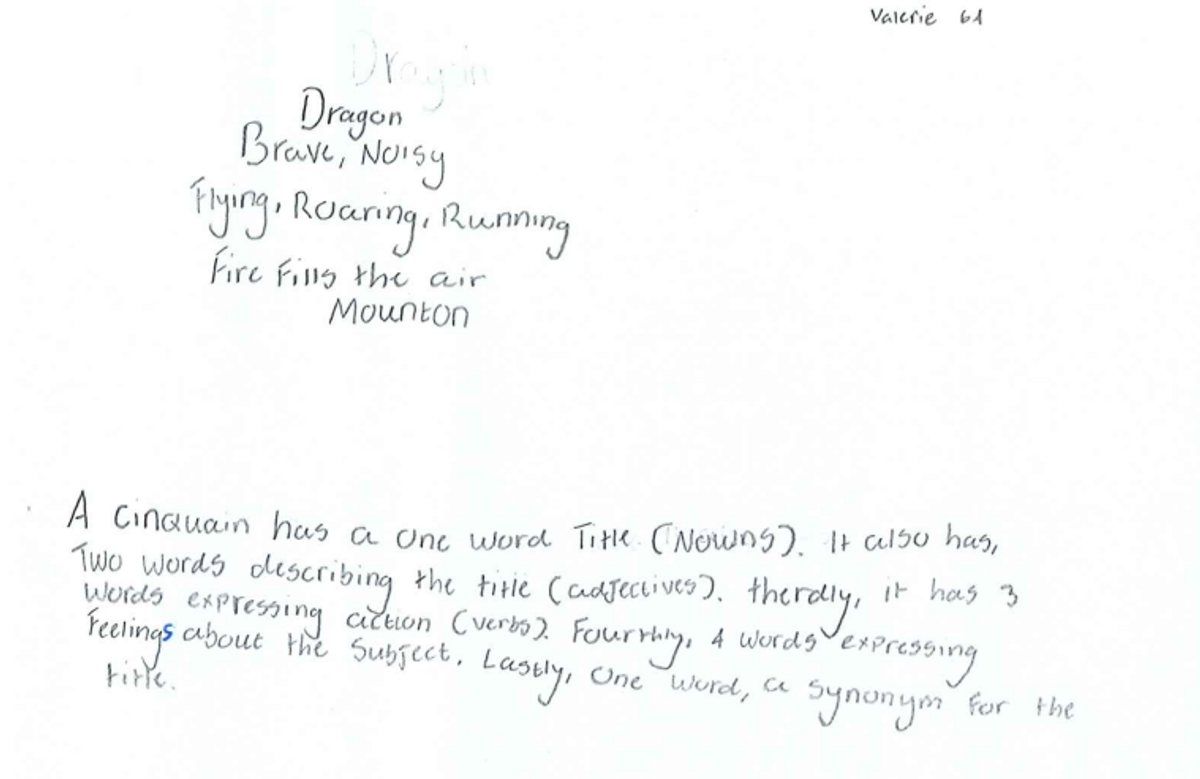 Valerie 6A
Dragon
Dragon
Brave, Noisy
Flying, Roaring, Running
Fire Fills the air
Mounton
A Cinquain has a one word Title (Nowns). It also has,
Two words describing the title (adjectives). therdly, it has 3
words expressing action (verbs). Fourthly, 4 words expressing
feelings about the Subject. Lastly, one word, a synonym for the
title.